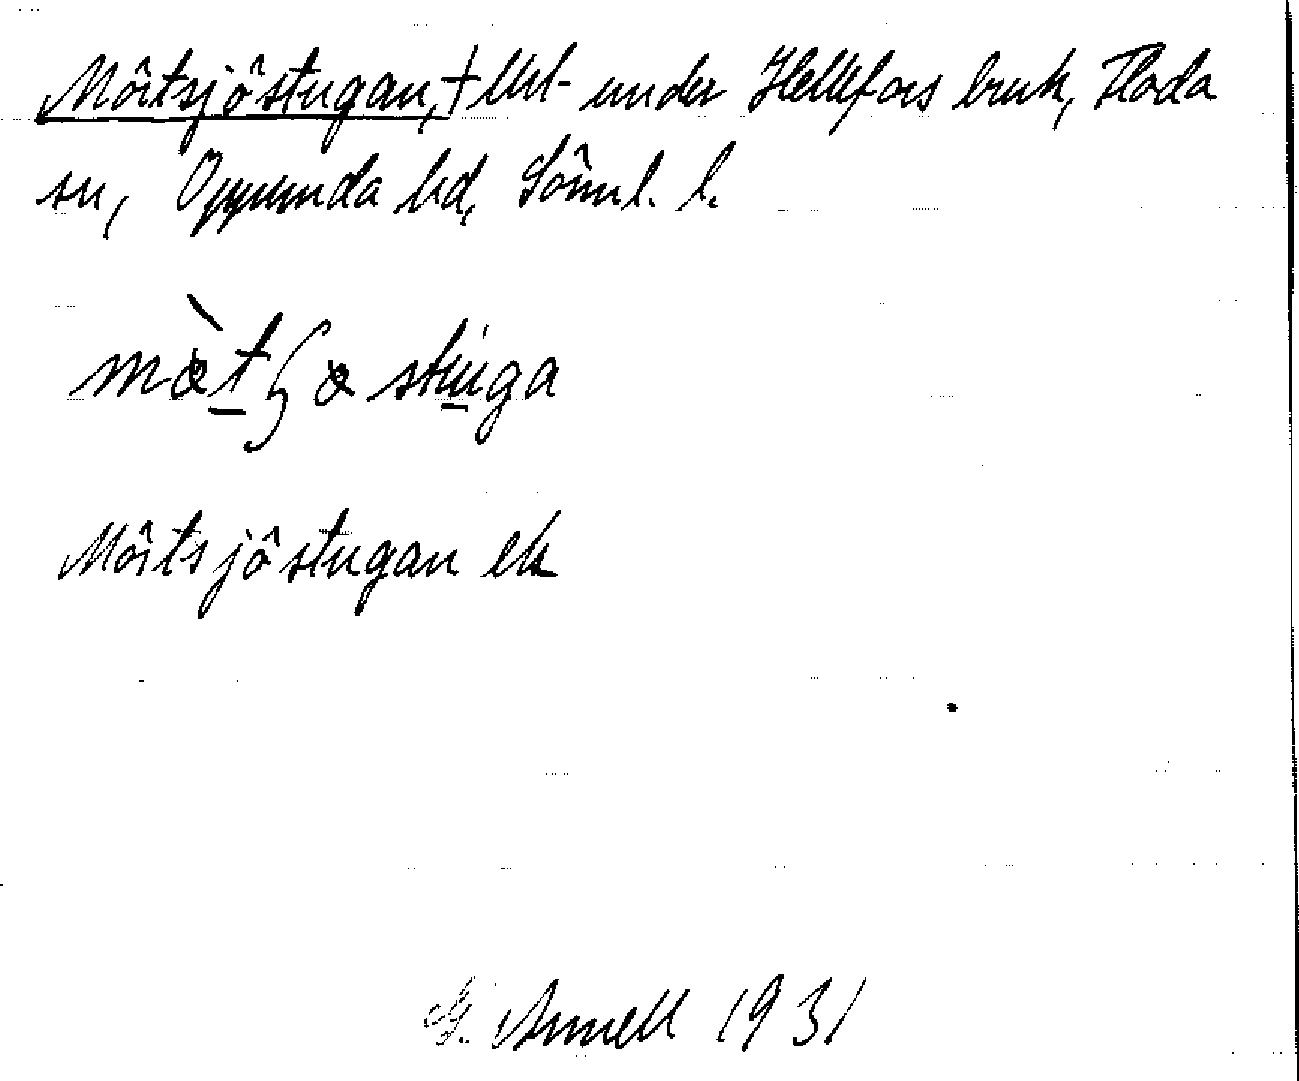 Mörtsjöstugan, † lht under Hellefors bruk, Floda
sn, Oppunda hd, Söml. l.
Mörtsjöstugan ek
G. Annell 1931